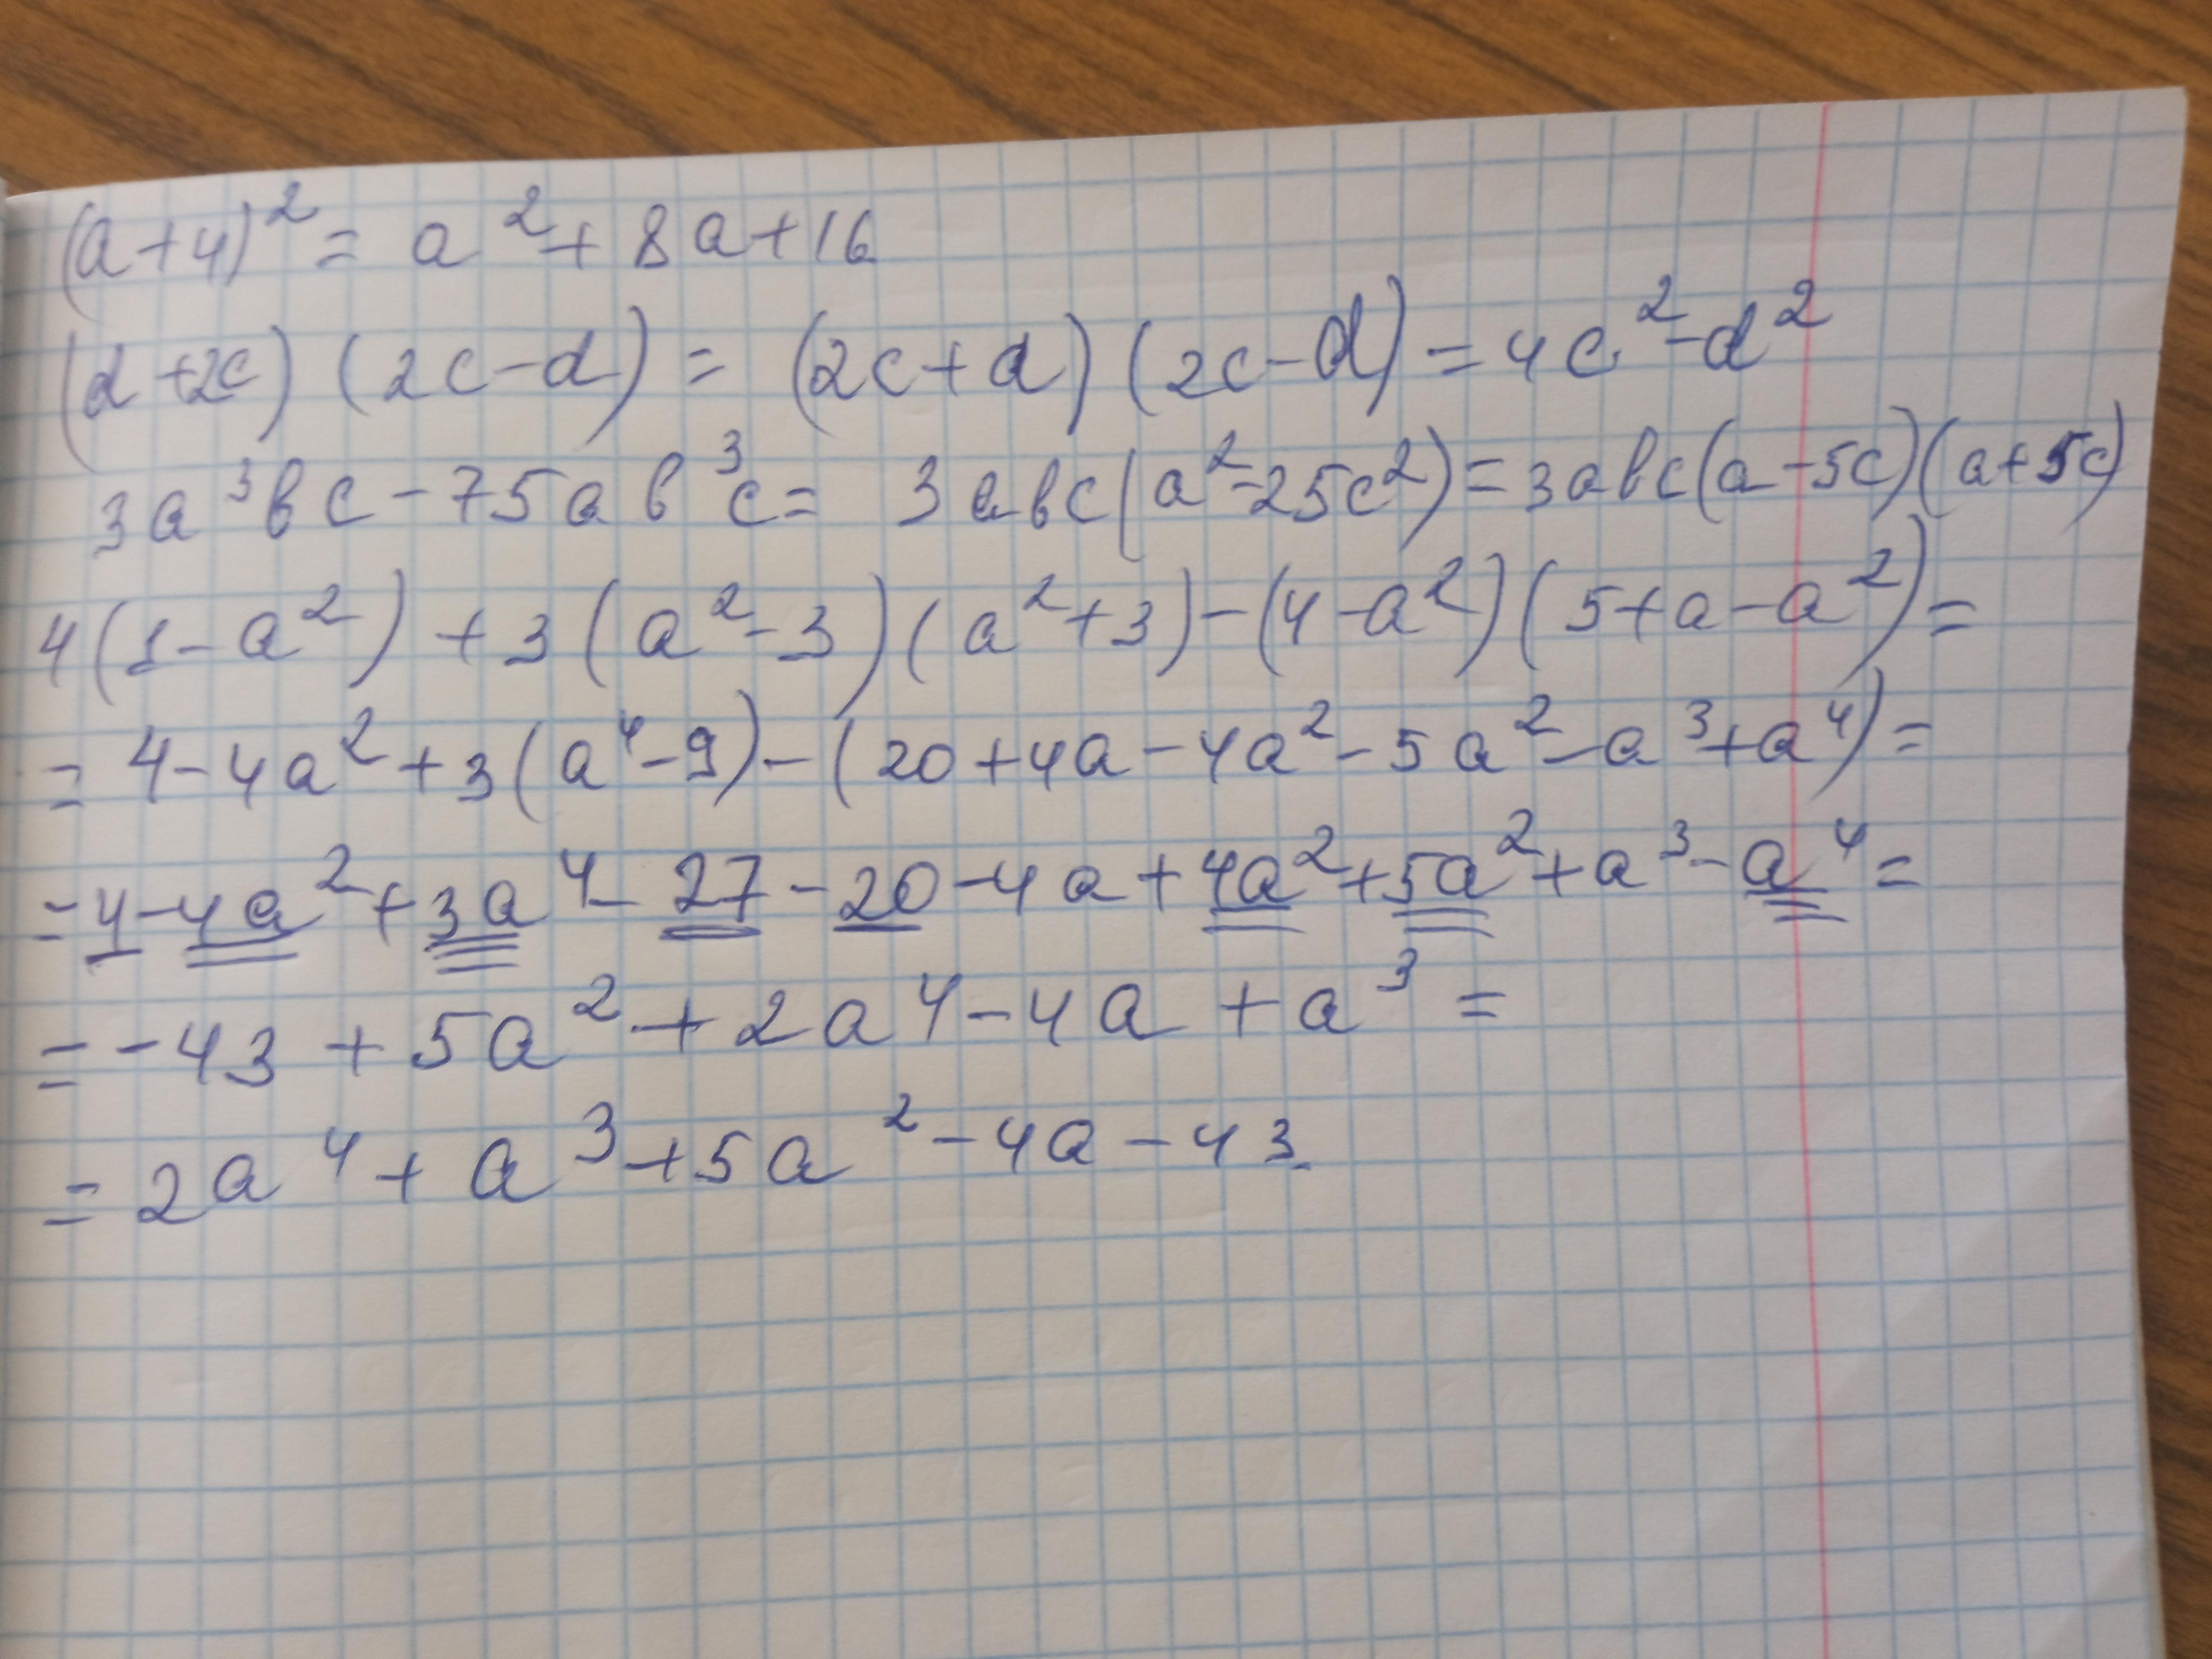 (a+4)² = a² + 8a+16
(d+2c) (2c-d) = (2c+d) (2c-d) = 4c²-d²
3a³bc - 75ab³c = 3abc(a²-25c²) = 3abc(a-5c)(a+5c)
4(1-a²) + 3(a²-3)(a²+3) - (4-a²)(5+a-a²) =
= 4-4a²+3(a⁴-9)-(20+4a-4a²-5a²-a³+a⁴) =
= 4-4a²+3a⁴-27-20-4a+4a²+5a²+a³-a⁴ =
= -43 + 5a² + 2a⁴ - 4a + a³ =
= 2a⁴ + a³ + 5a² - 4a - 43.